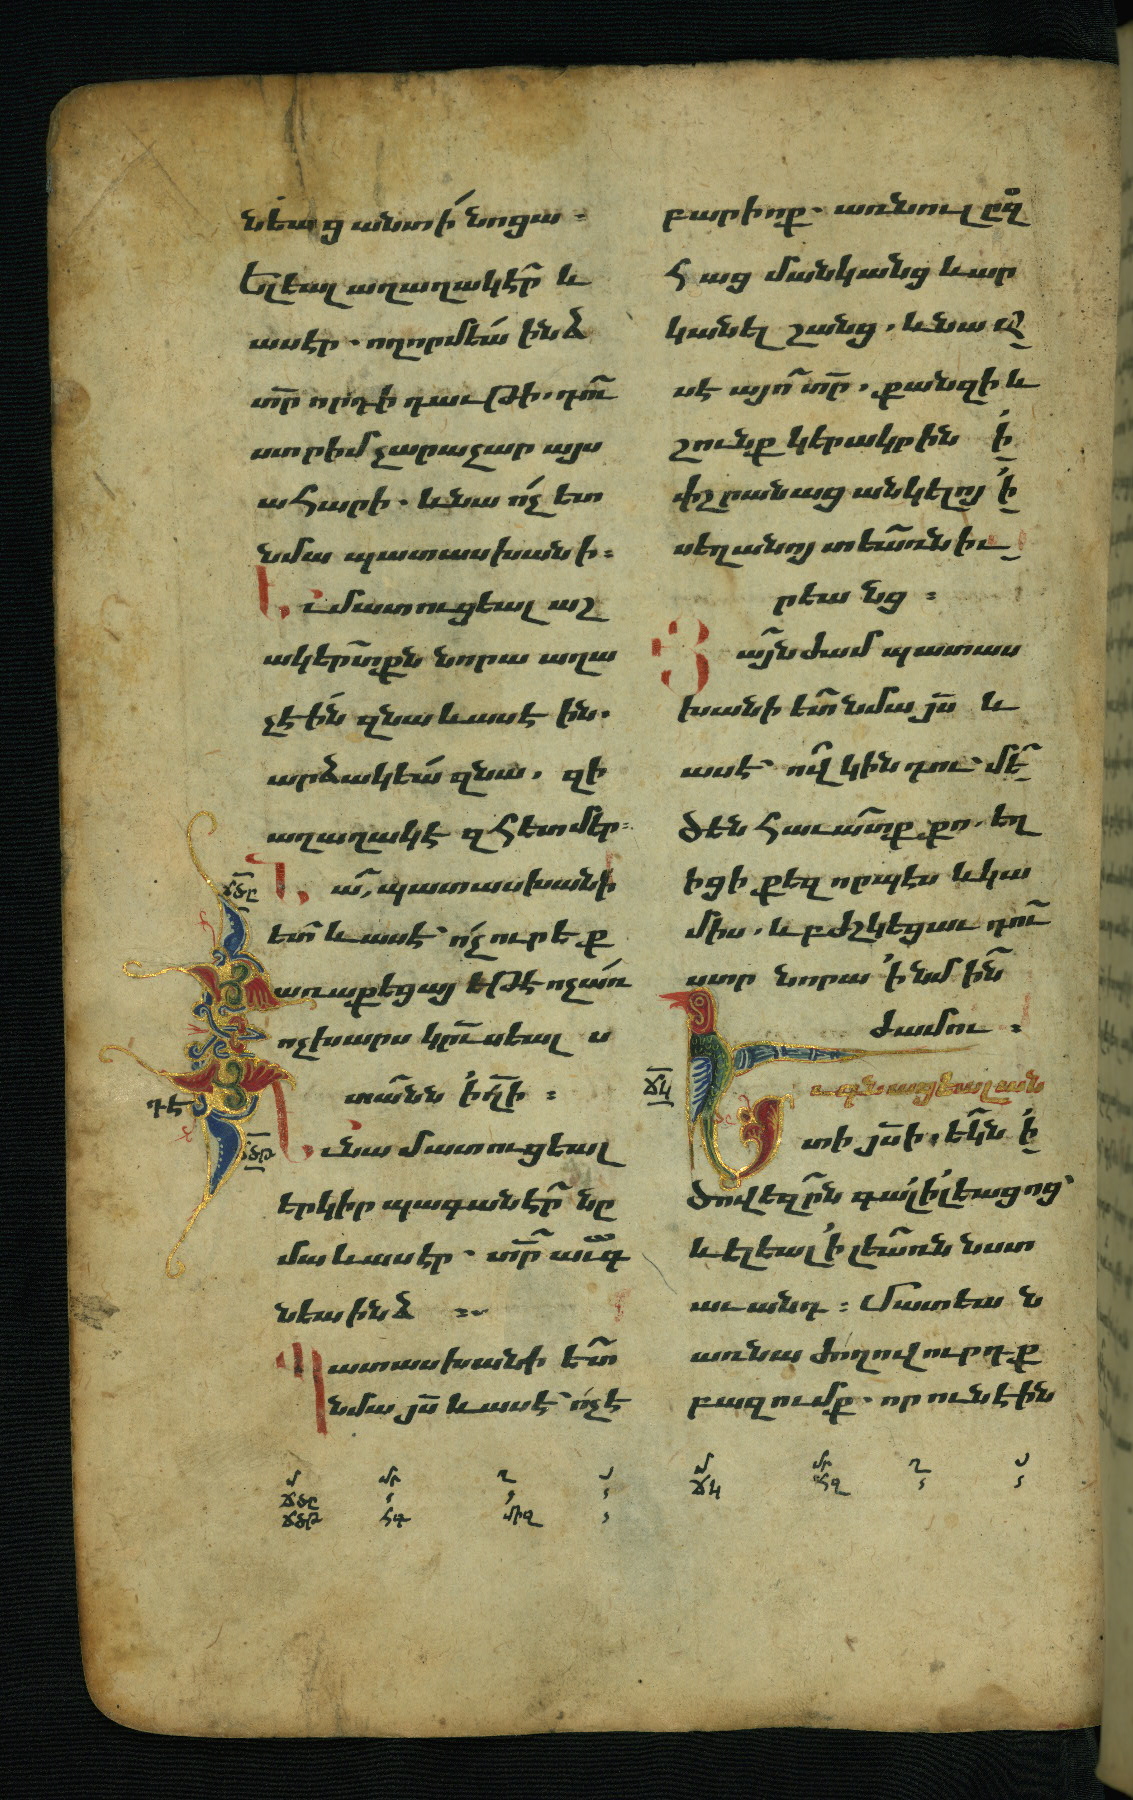 նեա՛ց անտի՛ նոցա։
Ելեալ աղաղակէր̃ և
ասէր. ողորմեա՛ ինձ
տր̃ որդի դաւթի. դու̃
ստր իմ չարաչար այս
ահարի. և նա ո՛չ ետ
նմա պատասխանի։
Եւ մատուցեալ աշ
ակեր̃տքն նորա աղա
չէի՛ն զնա և ասէին.
արձակեա՛ զնա. զի
աղաղակէ զհետ մեր։
Նա̃, պատասխանի
ետ̃ և ասէ՝ ո՛չ ուրեք
առաքեցայ եթէ ոչ առ
ոչխարս կորու̃սեալ ս
տա̃նն ի՛ ի̃լի։
Եւ նա մատուցեալ
երկիր պագանէր̃ նը
մա և ասէր. տր̃ աւգ
նեա ինձ։
Պատասխանի ետ̃
նմա յս̃ և ասէ՝ ո՛չ է
բարիոք. առնուլ ըզ
հաց մանկանց և ար
կանել շանց. և նա ա
սէ այո̃ տր̃. քանզի և
շունք կերակրին ի՛
փշրանաց անկելոյ ի՛
սեղանոյ տեա̃ռն իւ
րեանց։
Յայն̃ժամ պատաս
խանի ետ̃ նմա յս̃ և
ասէ՝ ով̃ կին դու՝ մե̃
ծ են հաւա̃տք քո. եղ
իցի քեզ որպէս և կա
միս. և բժշկեցաւ դու̃
ստր նորա ի՛ նմին̃
ժամու։
Եւ գնացեալ ան
տի յս̃ի. եկ̃ն ի՛
ծովեզր̃ն գալիլեացոց՝
և ելեալ ի՛ լեա̃ռն նստ
աւ անդ։ Մատեան
առ նա ժողովուրդք
բազումք. որ ունէին
ճծը
դե
ճծթ
ճկ
մ մր ղ յ
ճծը
ճծթ հգ միզ
մ մր ղ յ
ճկ հզ